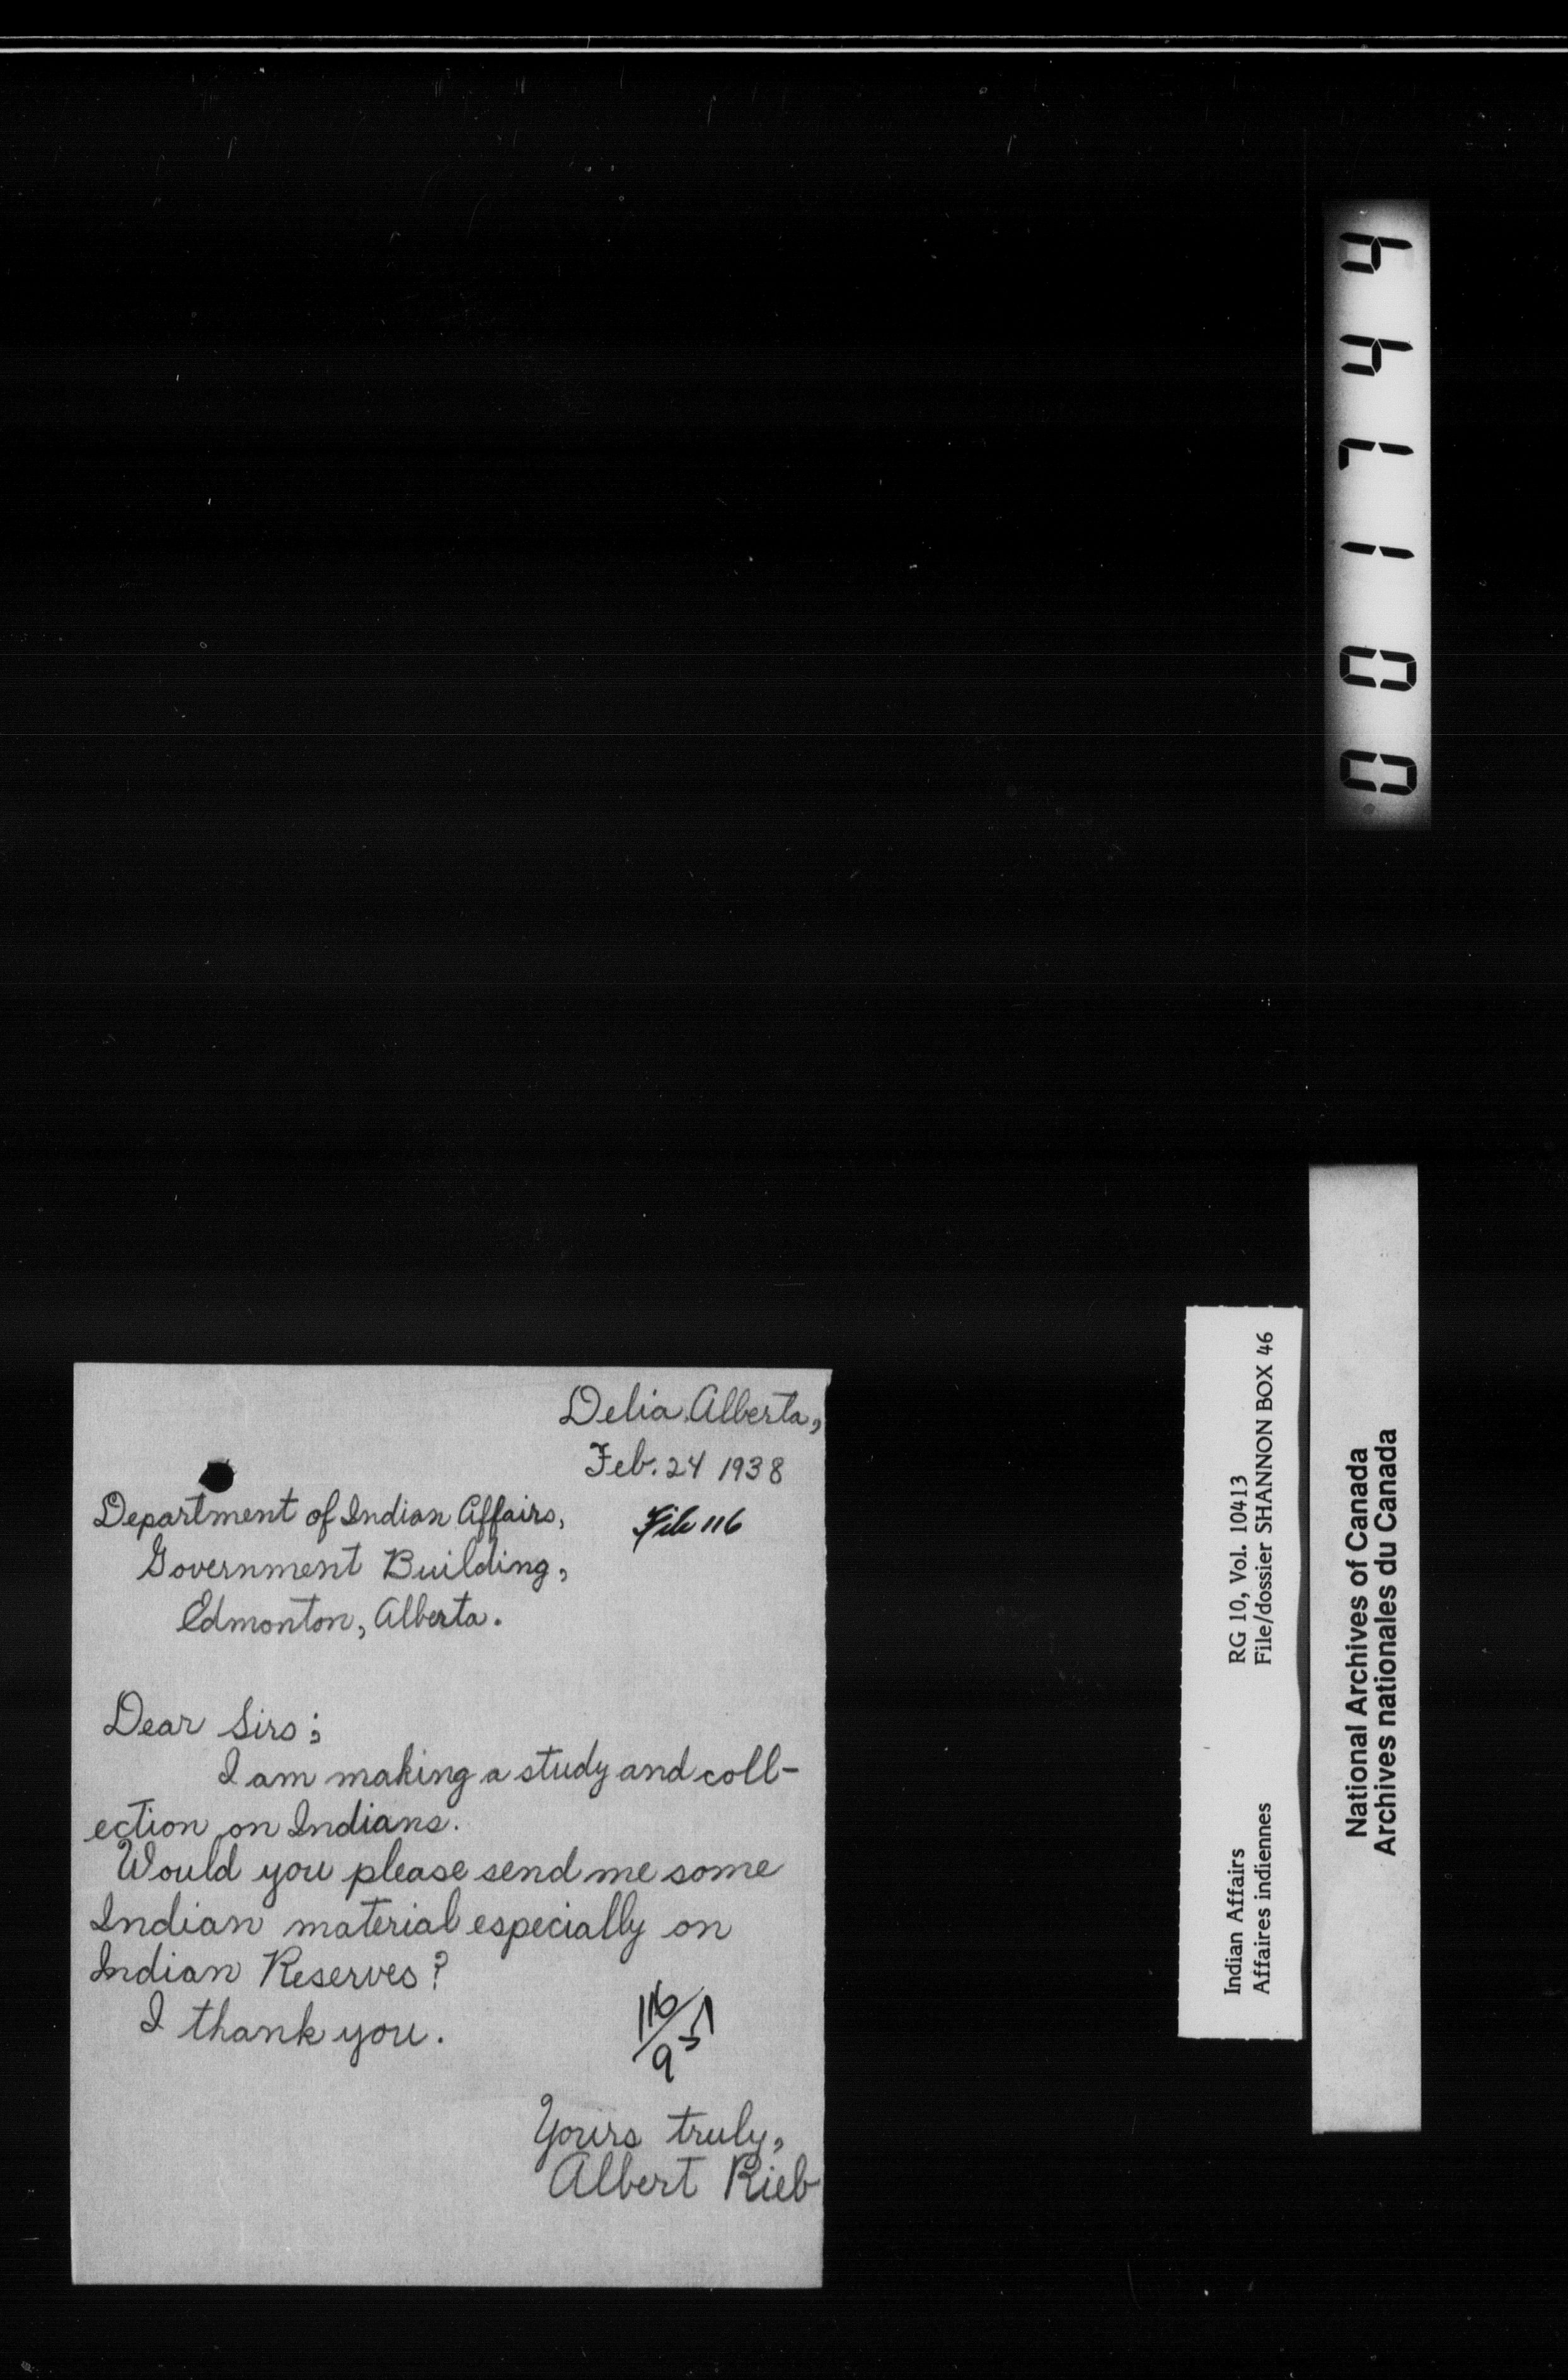 Delia, Alberta,
Feb. 24 1938
File 116
Department of Indian Affairs,
Government Building,
Edmonton, Alberta.
Dear Sirs;
I am making a study and coll-
ection on Indians.
Would you please send me some
Indian material especially on
Indian Reserves?
I thank you.
116/9
Yours truly,
Albert Rieb
001744
RG 10, Vol. 10413
File/dossier SHANNON BOX 46
Indian Affairs
Affaires indiennes
National Archives of Canada
Archives nationales du Canada